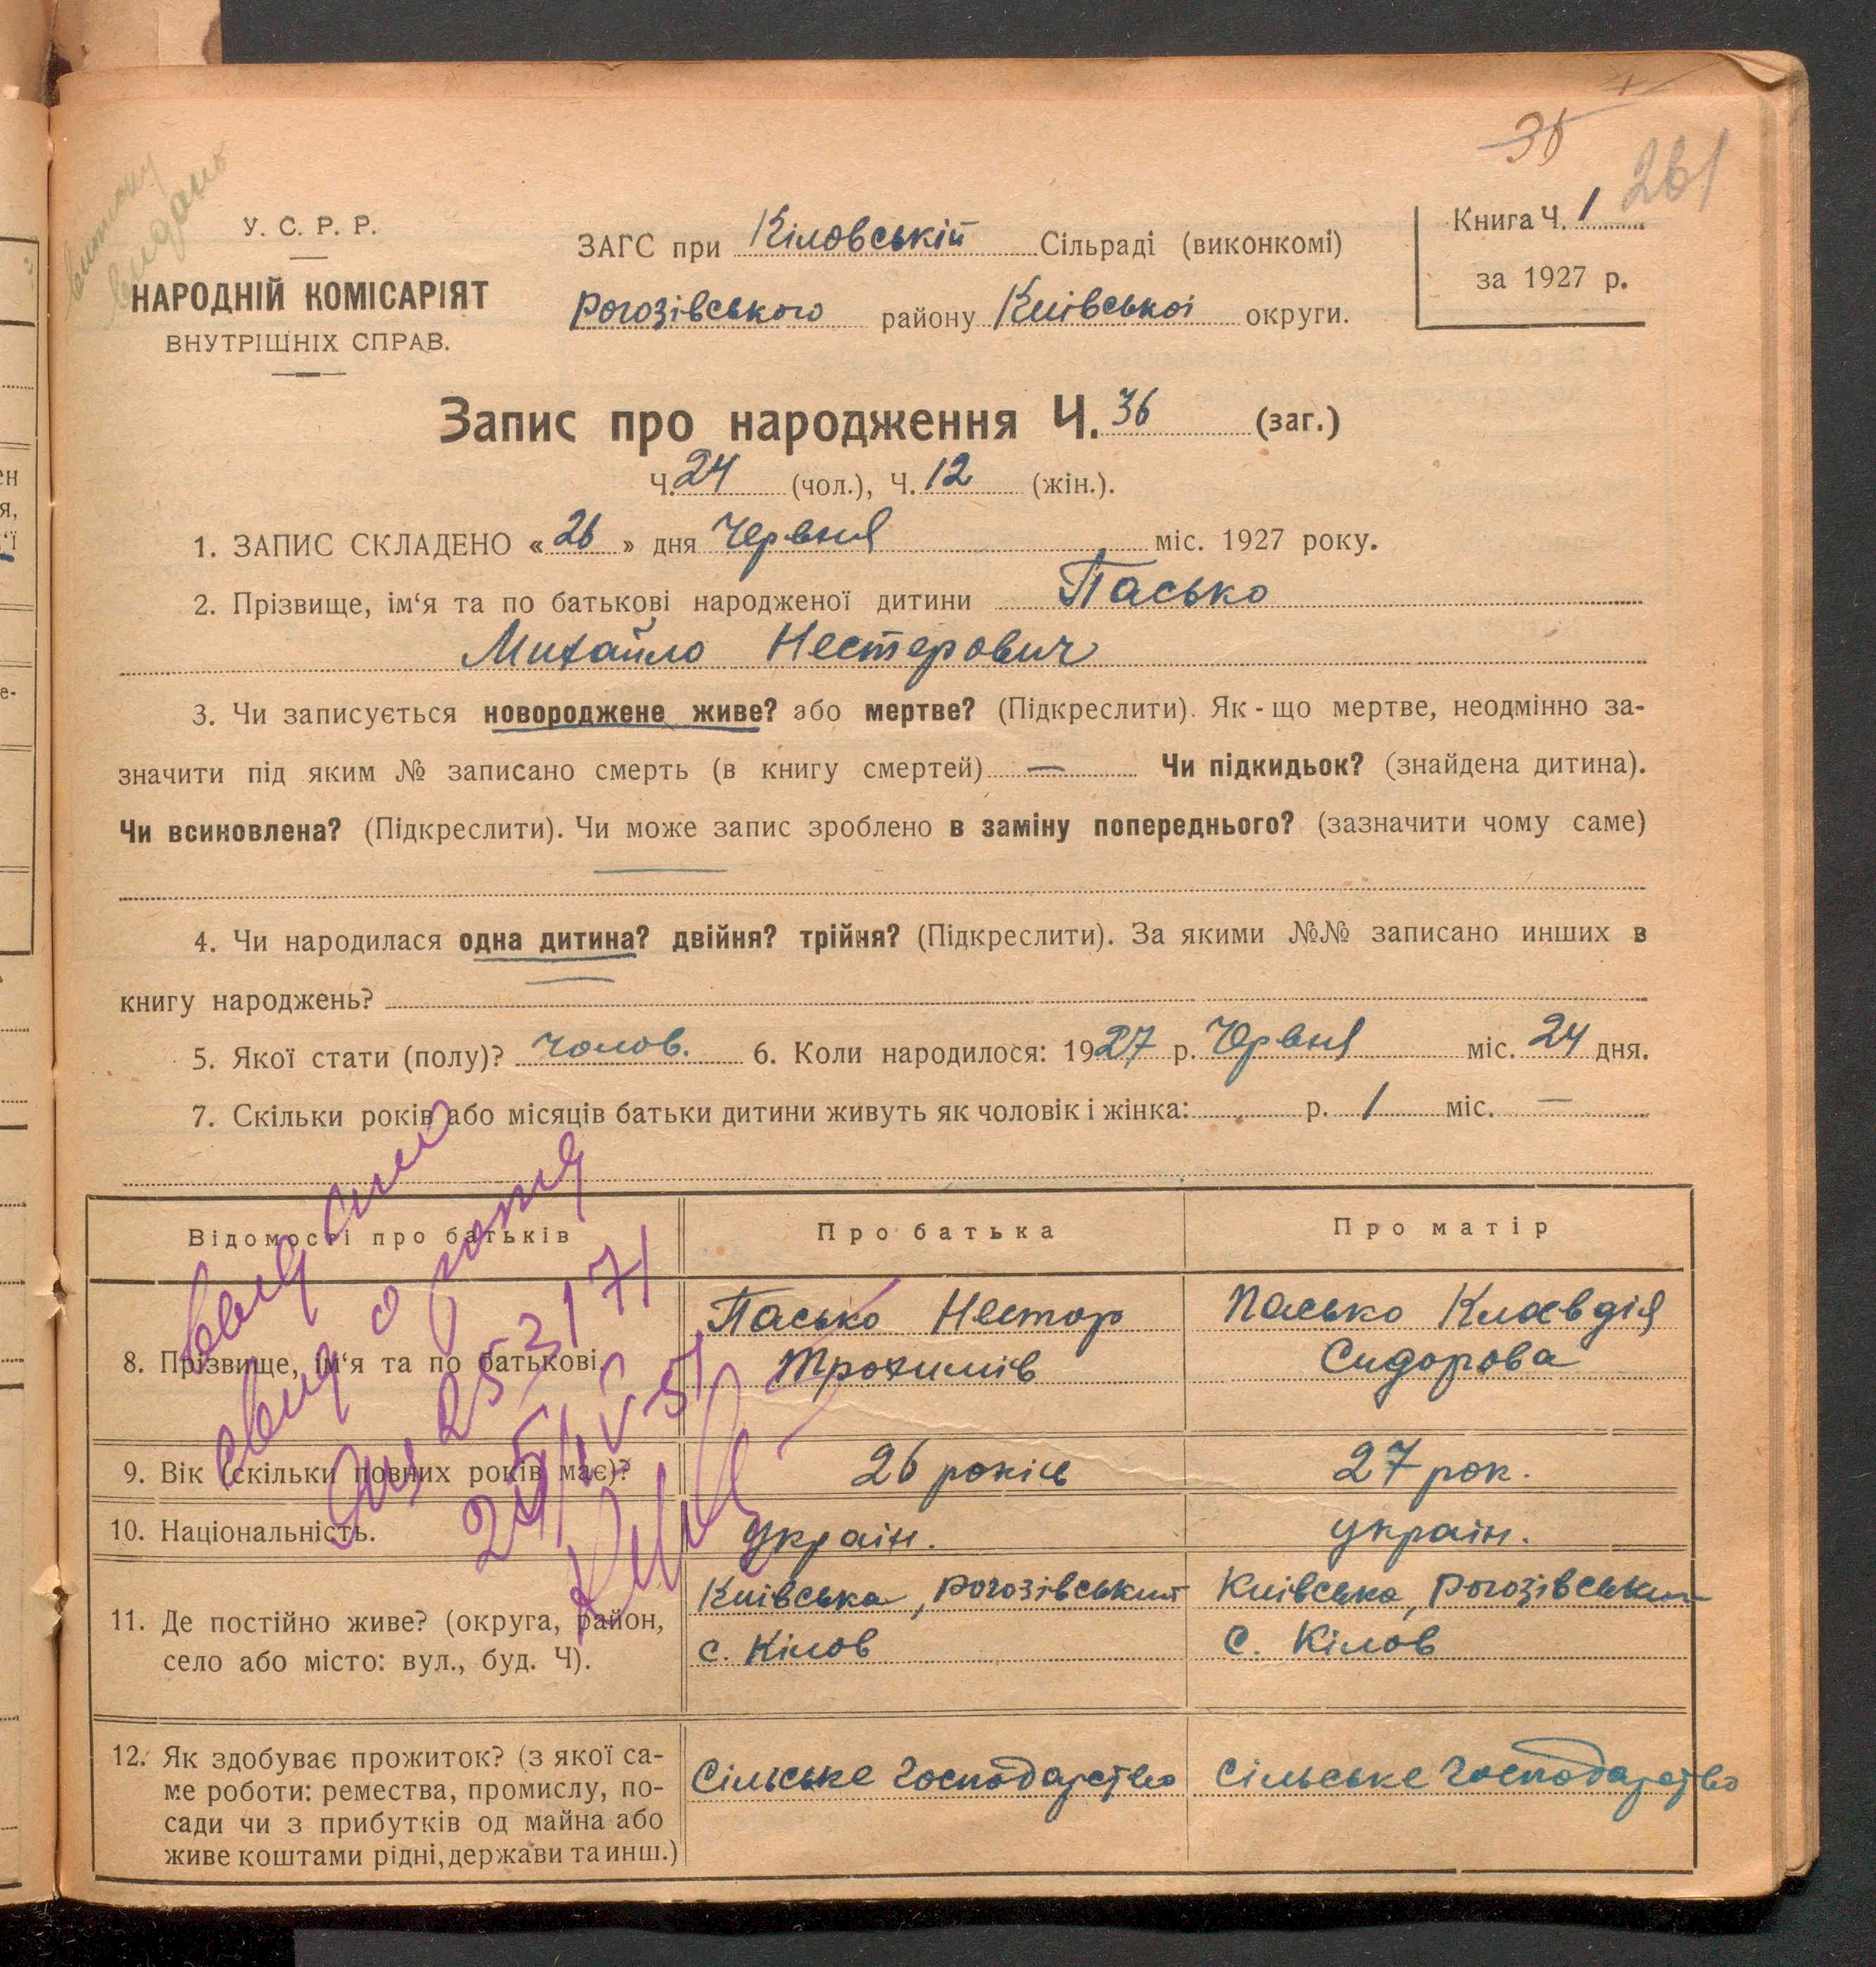 35
261
витяг
видано
У. С. Р. Р.
НАРОДНІЙ КОМІСАРІЯТ
ВНУТРІШНІХ СПРАВ.
ЗАГС при Кіловській Сільраді (виконкомі)
Рогозівського району Київської округи.
Книга Ч. 1
за 1927 р.
Запис про народження Ч. 36 (заг.)
Ч. 24 (чол.), Ч. 12 (жін.).
1. ЗАПИС СКЛАДЕНО « 26 » дня Червня міс. 1927 року.
2. Прізвище, ім‘я та по батькові народженої дитини Пасько
Михайло Нестерович
3. Чи записується новороджене живе? або мертве? (Підкреслити). Як - що мертве, неодмінно за-
значити під яким № записано смерть (в книгу смертей) — Чи підкидьок? (знайдена дитина).
Чи всиновлена? (Підкреслити). Чи може запис зроблено в заміну попереднього? (зазначити чому саме)
4. Чи народилася одна дитина? двійня? трійня? (Підкреслити). За якими №№ записано инших в
книгу народжень?
5. Якої стати (полу)? чолов. 6. Коли народилося: 1927 р. Червня міс. 24 дня.
7. Скільки років або місяців батьки дитини живуть як чоловік і жінка: р. 1 міс. —
Відомості про батьків Про батька Про матір
8. Прізвище, ім‘я та по батькові.
Пасько Нестор
Трохимів
Пасько Клавдія
Сидорова
9. Вік (скільки повних років має)? 26 років 27 рок.
10. Національність. україн. україн.
11. Де постійно живе? (округа, район,
село або місто: вул., буд. Ч).
Київська, Рогозівський
с. Кілов
Київська, Рогозівський
с. Кілов
12. Як здобуває прожиток? (з якої са-
ме роботи: ремества, промислу, по-
сади чи з прибутків од майна або
живе коштами рідні, держави та инш.)
Сільське господарство
Сільське господарство